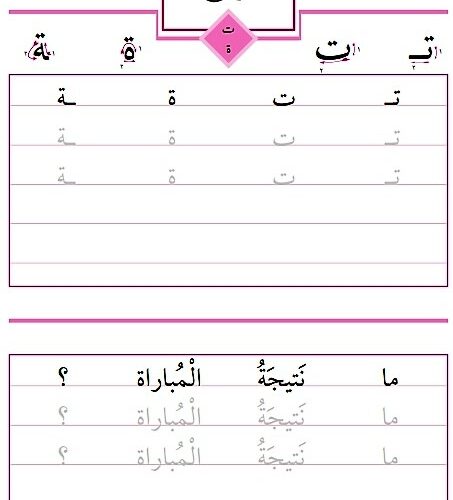 ت
ة
تـ ت ة ـة
تـ ت ة ـة
تـ ت ة ـة
تـ ت ة ـة
ما نَتيجَةُ الْمُباراة ؟
ما نَتيجَةُ الْمُباراة ؟
ما نَتيجَةُ الْمُباراة ؟